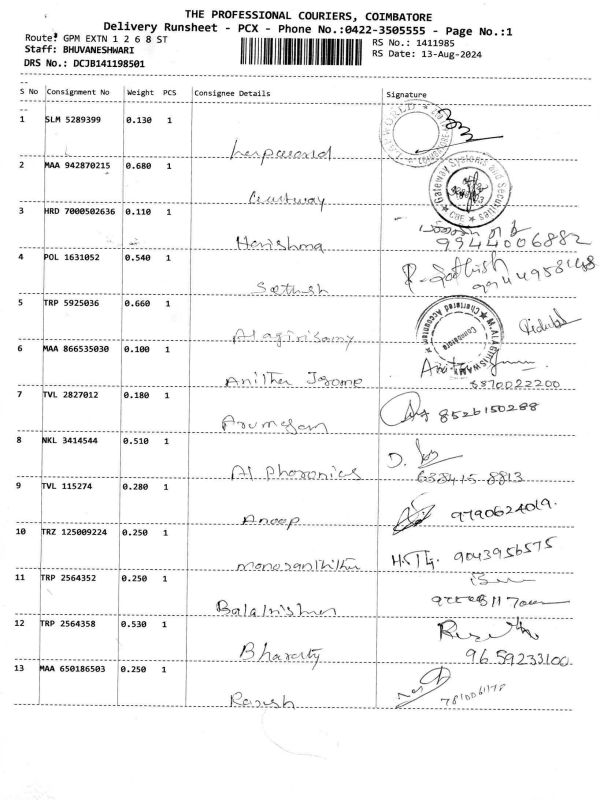 THE PROFESSIONAL COURIERS, COIMBATORE
Delivery Runsheet - PCX - Phone No.:0422-3505555 - Page No.:1
Route: GPM EXTN 1 2 6 8 ST
RS No.: 1411985
Staff: BHUVANESHWARI
RS Date: 13-Aug-2024
DRS No.: DCJB141198501
S No Consignment No Weight PCS Consignee Details Signature
1 SLM 5289399 0.130 1
2 MAA 942870215 0.680 1
Gateway Systems and Securities
CBE
3 HRD 7000502636 0.110 1
Harishma 9944006882
4 POL 1631052 0.540 1
R. Sathish
Sathish
5 TRP 5925036 0.660 1
Alagirisamy
M. ALAGIRISWAMY
Chartered Accountant
Coimbatore
6 MAA 866535030 0.100 1
Anitha 6870022200
7 TVL 2827012 0.180 1
8526150288
Arumugam
8 NKL 3414544 0.510 1
D.
638415 8813
9 TVL 115274 0.280 1
Anoop 9790624019.
10 TRZ 125009224 0.250 1
9043956575
11 TRP 2564352 0.250 1
Balakrishnan
12 TRP 2564358 0.530 1
Bharaty 9659233100.
13 MAA 650186503 0.250 1
7810061178
Rajesh